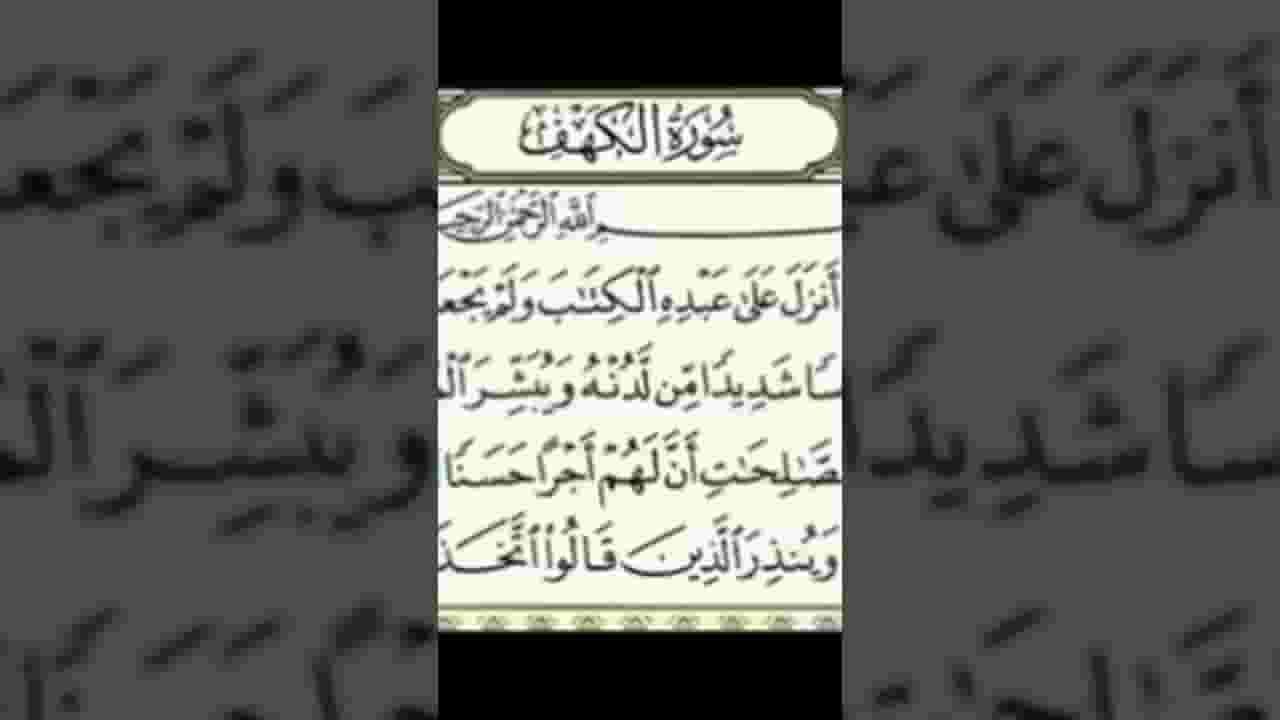 سُورَةُ الْكَهْفِ
ـمِ ٱللَّهِ ٱلرَّحْمَٰنِ ٱلرَّحِيـ
أَنزَلَ عَلَىٰ عَبْدِهِ ٱلْكِتَٰبَ وَلَمْ يَجْعَـ
ـسًا شَدِيدًا مِّن لَّدُنْهُ وَيُبَشِّرَ ٱلْمـ
ـصَّٰلِحَٰتِ أَنَّ لَهُمْ أَجْرًا حَسَنًا
وَيُنذِرَ ٱلَّذِينَ قَالُوا۟ ٱتَّخَذَ